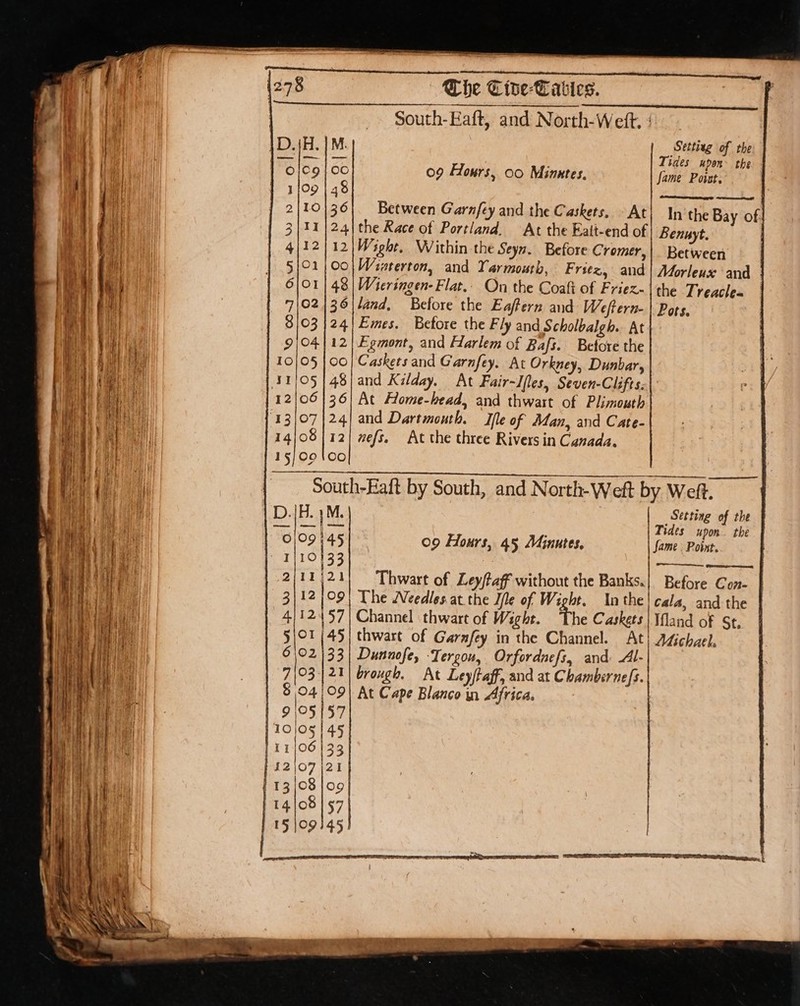 278 The Tide-Tables.
South-Eaſt, and North-Weſt.
D. H. M. Setting of the
Tides upon the
ſame Point.
09 Hours, 00 Minutes.
0 09 00
1 09 48
2 10 36 Between Garnſey and the Caskets. At In the Bay of
3 11 24 the Race of Portland. At the Eaſt-end of Benuyt.
4 12 12 Wight. Within the Seyn. Before Cromer, Between
5 01 00 Winterton, and Yarmouth, Friez, and Morleux and
6 01 48 Wieringen-Flat. On the Coaſt of Friez- the Treacle-
7 02 36 land, Before the Eaſtern and Weſtern- Pots.
8 03 24 Emes. Before the Fly and Scholbalgh. At
9 04 12 Egmont, and Harlem of Baſs. Before the
10 05 00 Caskets and Garnſey. At Orkney, Dunbar,
11 05 48 and Kilday. At Fair-Iſles, Seven-Clifts.
12 06 36 At Home-head, and thwart of Plimouth
13 07 24 and Dartmouth. Iſle of Man, and Cate-
14 08 12 neſs. At the three Rivers in Canada.
15 09 00
South-Eaſt by South, and North-Weſt by Weſt.
D. H. M. Setting of the
Tides upon the
ſame Point.
09 Hours, 45 Minutes.
0 09 45
1 10 33
2 11 21 Thwart of Leyſtaff without the Banks. Before Con-
3 12 09 The Needles at the Iſle of Wight. In the cala, and the
4 12 57 Channel thwart of Wight. The Caskets Iſland of St.
5 01 45 thwart of Garnſey in the Channel. At Michael.
6 02 33 Dunnoſe, Tergou, Orfordneſs, and Al-
7 03 21 brough. At Leyſtaff, and at Chamberneſs.
8 04 09 At Cape Blanco in Africa.
9 05 57
10 05 45
11 06 33
12 07 21
13 08 09
14 08 57
15 09 45